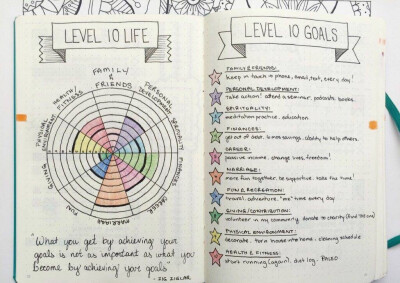 LEVEL 10 LIFE
FAMILY
&
FRIENDS
PERSONAL
DEVELOPMENT
SPIRITUALITY
FINANCES
CAREER
MARRIAGE
FUN
GIVING
PHYSICAL
ENVIRONMENT
HEALTH
FITNESS
"What you get by achieving your
goals is not as important as what you
become by achieving your goals"
- ZIG ZIGLAR
LEVEL 10 GOALS
FAMILY & FRIENDS:
keep in touch to phone, email, text, every day!
PERSONAL DEVELOPMENT:
take action! attend a seminar, podcasts, books.
SPIRITUALITY:
meditation practice, education
FINANCES:
get out of debt, savings, ability to help others.
CAREER:
passive income, change lives, freedom!
MARRIAGE:
more fun together, be supportive, take time!
FUN & RECREATION:
travel, adventure, "me" time every day
GIVING/CONTRIBUTION:
volunteer in my community, donate to charity
PHYSICAL ENVIRONMENT:
decorate, turn house into home, cleaning schedule
HEALTH & FITNESS:
start running (again), diet log, PALEO